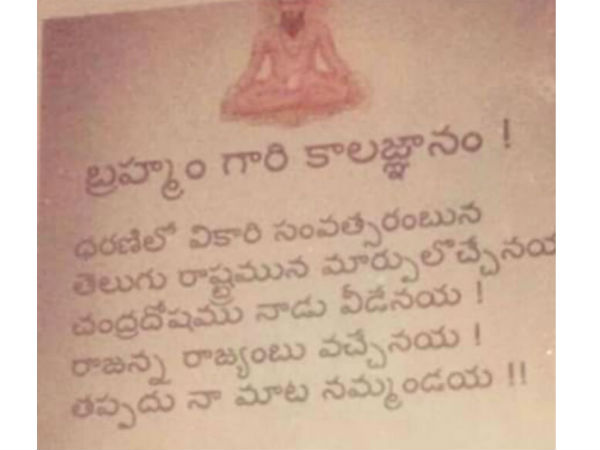 బ్రహ్మం గారి కాలజ్ఞానం !
ధరణిలో వికారి సంవత్సరంబున
తెలుగు రాష్ట్రమున మార్పులొచ్చేనయ
చంద్రదోషము నాడు వీడేనయ !
రాజన్న రాజ్యంబు వచ్చేనయ !
తప్పదు నా మాట నమ్మండయ !!